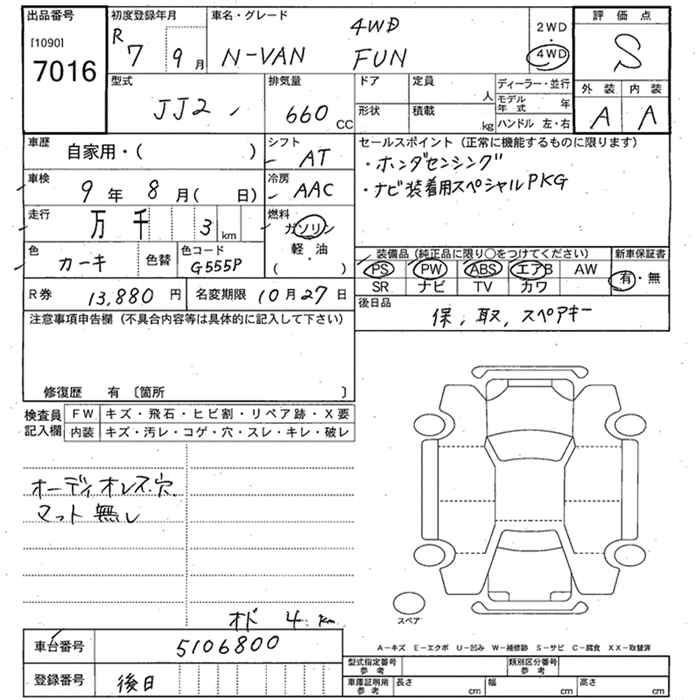 出品番号
[1090]
7016
初度登録年月
R 7 9月
車名・グレード
N-VAN 4WD FUN
2WD
・
4WD
評価点
S
外装 内装
A A
型式
JJ2
排気量
660 CC
ドア
定員
人
形状
積載
kg
ディーラー・並行
モデル年式 年
ハンドル 左・右
車歴
自家用・( )
シフト
AT
車検
9年 8月( 日)
冷房
AAC
走行
万 千 3 km
燃料
ガソリン
・
軽・油
( )
色
カーキ
色替
色コード
G555P
R券 13,880円
名変期限 10月27日
セールスポイント (正常に機能するものに限ります)
・ホンダセンシング
・ナビ装着用スペシャルPKG
装備品 (純正品に限り○をつけてください)
PS PW ABS エアB AW
SR ナビ TV カワ
新車保証書
有・無
後日品
保, 取, スペアキー
注意事項申告欄 (不具合内容等は具体的に記入して下さい)
修復歴 有 〔箇所 〕
検査員記入欄
FW キズ・飛石・ヒビ割・リペア跡・X要
内装 キズ・汚レ・コゲ・穴・スレ・キレ・破レ
オーディオレス穴
マット無し
オド 4 km
スペア
車台番号 5106800
登録番号 後日
A－キズ E－エクボ U－凹み W－補修跡 S－サビ C－腐食 XX－取替済
型式指定番号 参考
類別区分番号 参考
車庫証明用 参考
長さ cm 幅 cm 高さ cm